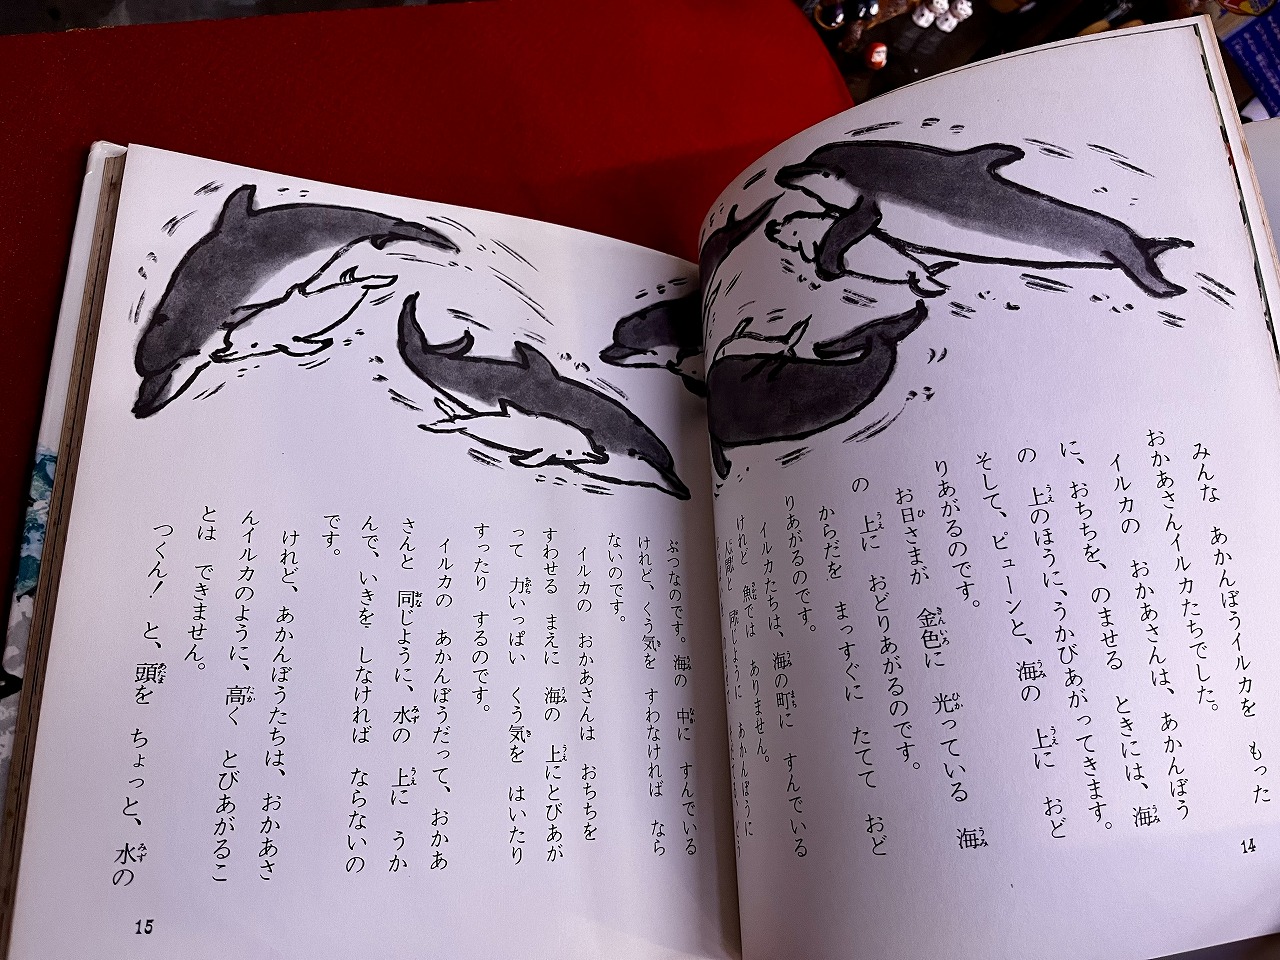 みんな あかんぼうイルカを もった
おかあさんイルカたちでした。
イルカの おかあさんは、あかんぼう
に、おちちを、のませる ときには、海
の 上のほうに、うかびあがってきます。
そして、ピューンと、海の 上に おど
りあがるのです。
お日さまが 金色に 光っている 海
の 上に おどりあがるのです。
からだを まっすぐに たてて おど
りあがるのです。
イルカたちは、海の町に すんでいる
けれど 魚では ありません。
人間と 同じように あかんぼうに
14
ぶつなのです。海の 中に すんでいる
けれど、くう気を すわなければ なら
ないのです。
イルカの おかあさんは おちちを
すわせる まえに 海の 上にとびあが
って 力いっぱい くう気を はいたり
すったり するのです。
イルカの あかんぼうだって、おかあ
さんと 同じように、水の 上に うか
んで、いきを しなければ ならないの
です。
けれど、あかんぼうたちは、おかあさ
んイルカのように、高く とびあがるこ
とは できません。
つくん! と、頭を ちょっと、水の
15